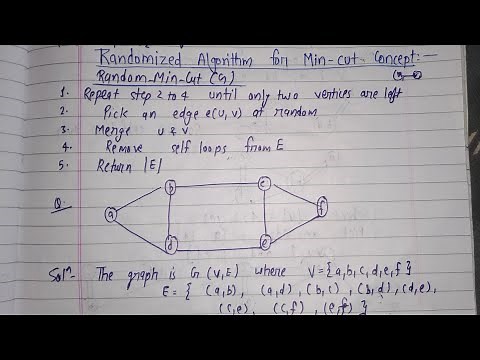 Randomized Algorithm for Min-cut Concept:-
Random-Min-Cut (G)
1. Repeat step 2 to 4 until only two vertices are left
2. Pick an edge e(u,v) at random
3. Merge u & v
4. Remove self loops from E
5. Return |E|
Q.
b c
a f
d e
Solⁿ- The graph is G(V,E) where V={a,b,c,d,e,f}
E = { (a,b), (a,d), (b,c), (b,d), (d,e),
(c,e), (c,f), (e,f) }